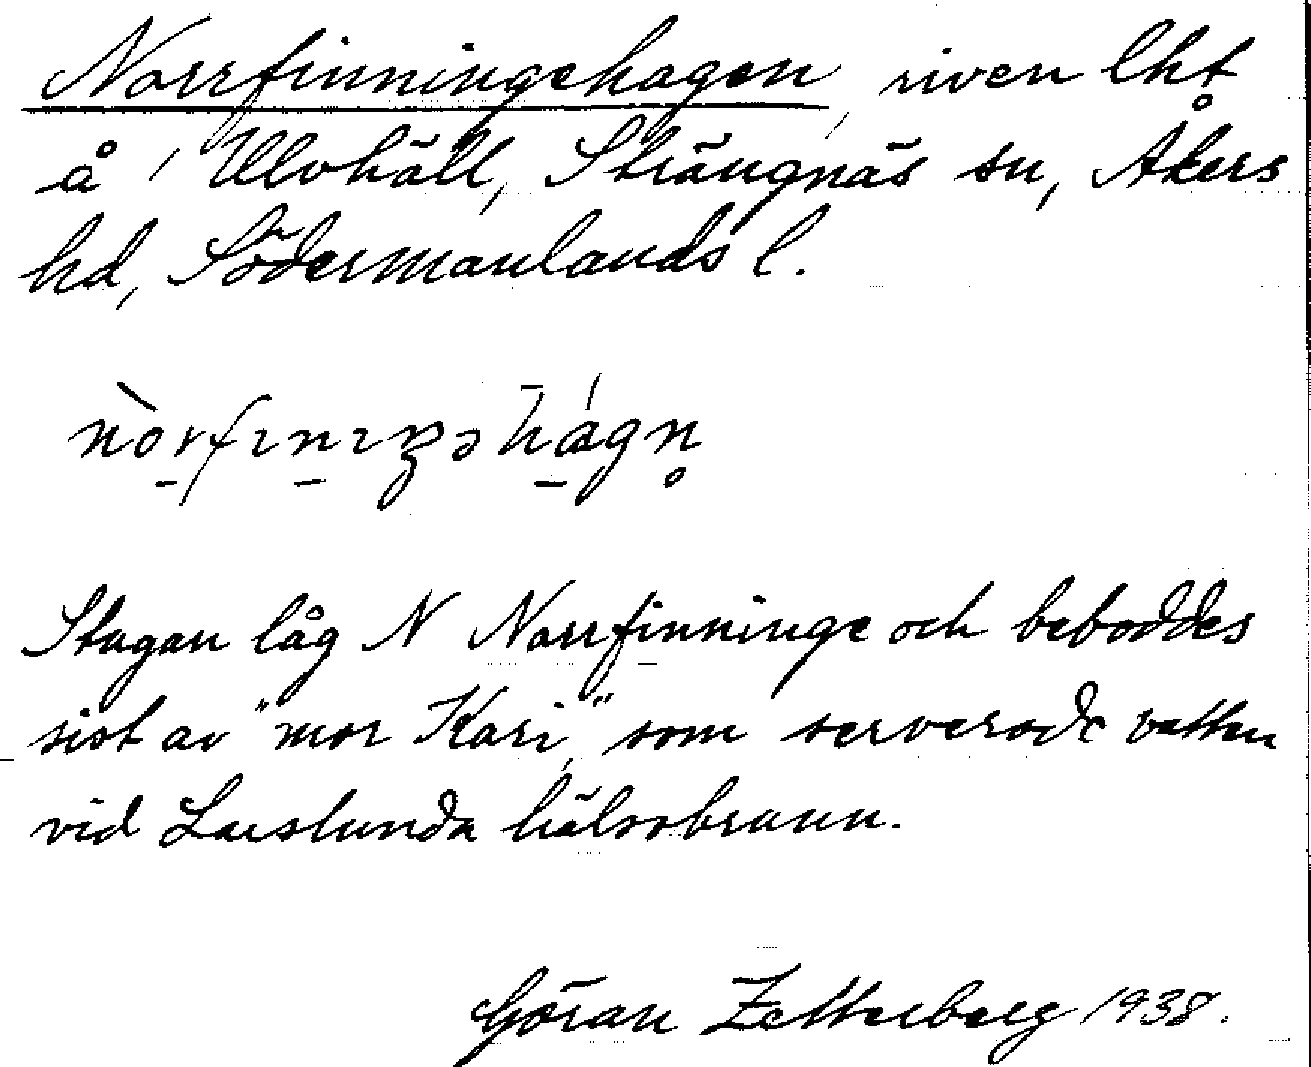 Norrfinningehagen, riven lht
å Ulvhäll, Strängnäs sn, Åkers
hd, Södermanlands l.
Stugan låg N Norrfinninge och beboddes
sist av "mor Kari", som serverade vatten
vid Larslunda hälsobrunn.
Göran Zetterberg 1938.